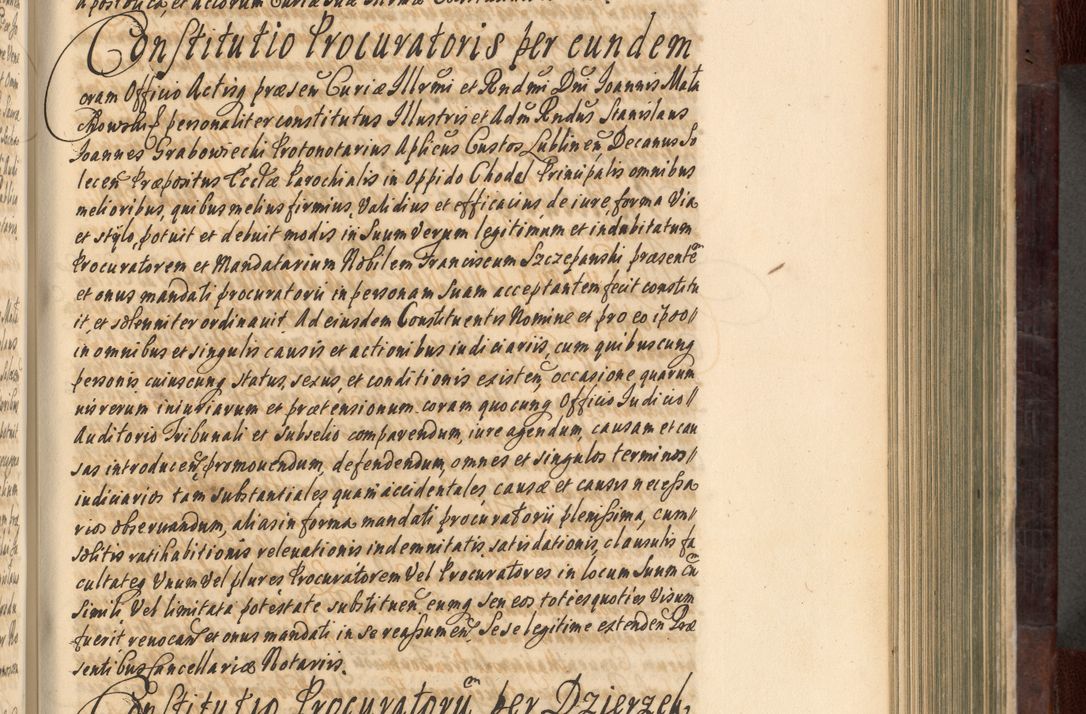 Constitutio Procuratoris per eundem
oram Officio Actisq præsen Curiæ Illrmi et Rndmi Dni Joannis Mała
chowski personaliter constitutus Illustris et Adm Rndus Stanislaus
Joannes Grabowiecki Protonotarius Aplicus Custos Lublinen Decanus So
lecen Præpositus Ecclæ Parochialis in Oppido Chodel Principalis omnibus
melioribus, quibus melius firmius, Validius et efficacius de iure, forma Via
et stylo, potuit et debuit modis in Suum Verum legitimum et indubitatum
Procuratorem et Mandatarium Nobilem Franciscum Szczepanski præsente
et onus mandati procuratorii in personam Suam acceptantem fecit constitu
it, et solenniter ordinavit Ad eiusdem Constituentis Nomine et pro eo ipso //
in omnibus et singulis causis et actionibus iudiciariis, cum quibuscunq
personis cuiuscunq status, sexus, et conditionis existen, occasione quarum
vis rerum iniuriarum et prætensionum coram quocunq Officio Judicio //
Auditorio Tribunali et Subselio comparendum, iure agendum, causam et cau
sas introducen, promouendum, defendendum, omnes et singulos terminos //
iudiciarios tam substantiales quam accidentales causæ et causis necessa
rios observandum, alias in forma mandati procuratorii plenissima, cum //
solitis ratihabitionis relevationis indemnitatis, satisdationis, clausulis fa
cultateq Vnum Vel plures Procuratorem Vel Procuratores in locum Suum cu
Simili Vel limitata potestate substituen, eumq seu eos toties quoties Visum
fuerit revocan et onus mandati in se reassumen, Se se legitime extenden Præ
sentibus Cancellariæ Notariis.
Constitutio Procuratorii per Dzierzek